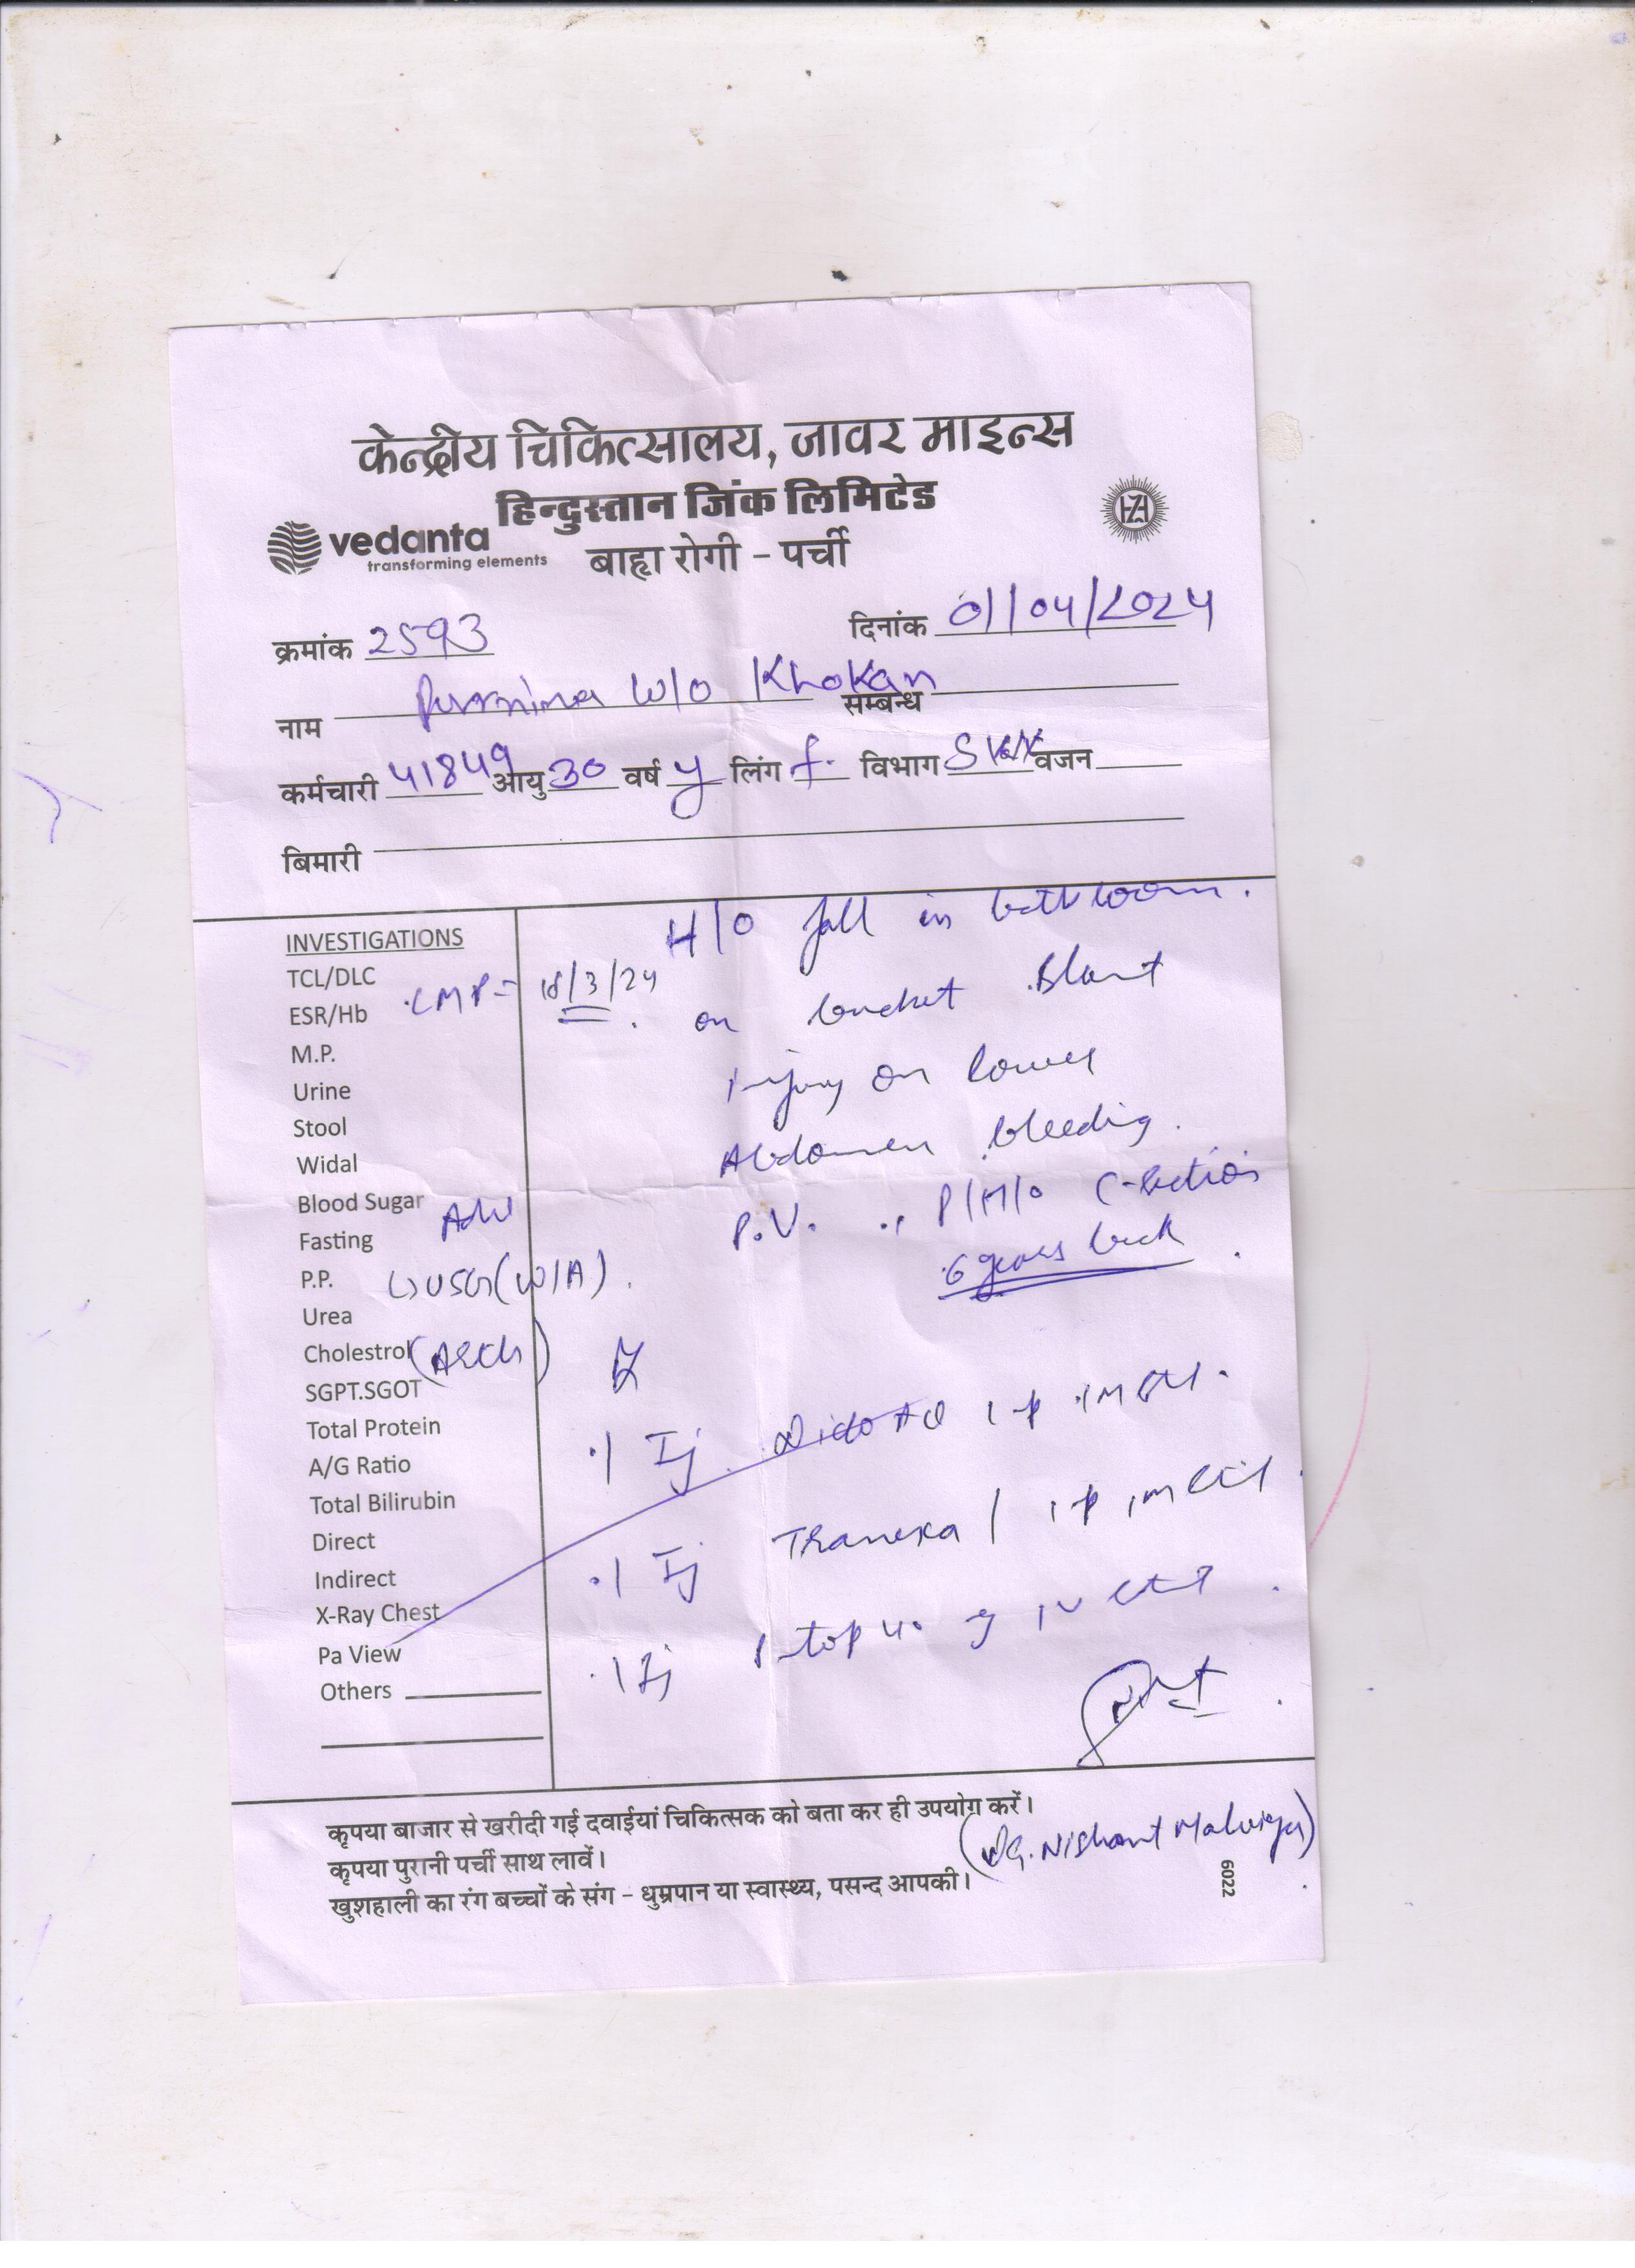 केन्द्रीय चिकित्सालय, जावर माइन्स
हिन्दुस्तान जिंक लिमिटेड
vedanta
transforming elements
HZL
बाह्य रोगी - पर्ची
क्रमांक 2593 दिनांक 01/04/2024
नाम Purnima W/O Khokan सम्बन्ध
कर्मचारी 41849 आयु 30 वर्ष y लिंग f. विभाग वजन
बिमारी
H/O fall in bathroom.
INVESTIGATIONS
TCL/DLC
LMP = 18/3/24 on bucket Blunt
ESR/Hb
M.P.
injury on lower
Urine
Stool
Abdomen bleeding.
Widal
P.V. P/H/O C-Section
Blood Sugar
Adv
Fasting
6 years back
P.P.
USG (W/A).
Urea
Cholestrol
SGPT.SGOT
Total Protein
Inj 1 IM
A/G Ratio
Total Bilirubin
Direct
Inj Tranexa 1 IM
Indirect
X-Ray Chest
Pa View
Inj Ptop 40 IV
Others
कृपया बाजार से खरीदी गई दवाईयां चिकित्सक को बता कर ही उपयोग करें।
(Dr. Nishant Malviya)
कृपया पुरानी पर्ची साथ लावें।
खुशहाली का रंग बच्चों के संग - धुम्रपान या स्वास्थ्य, पसन्द आपकी।
6022